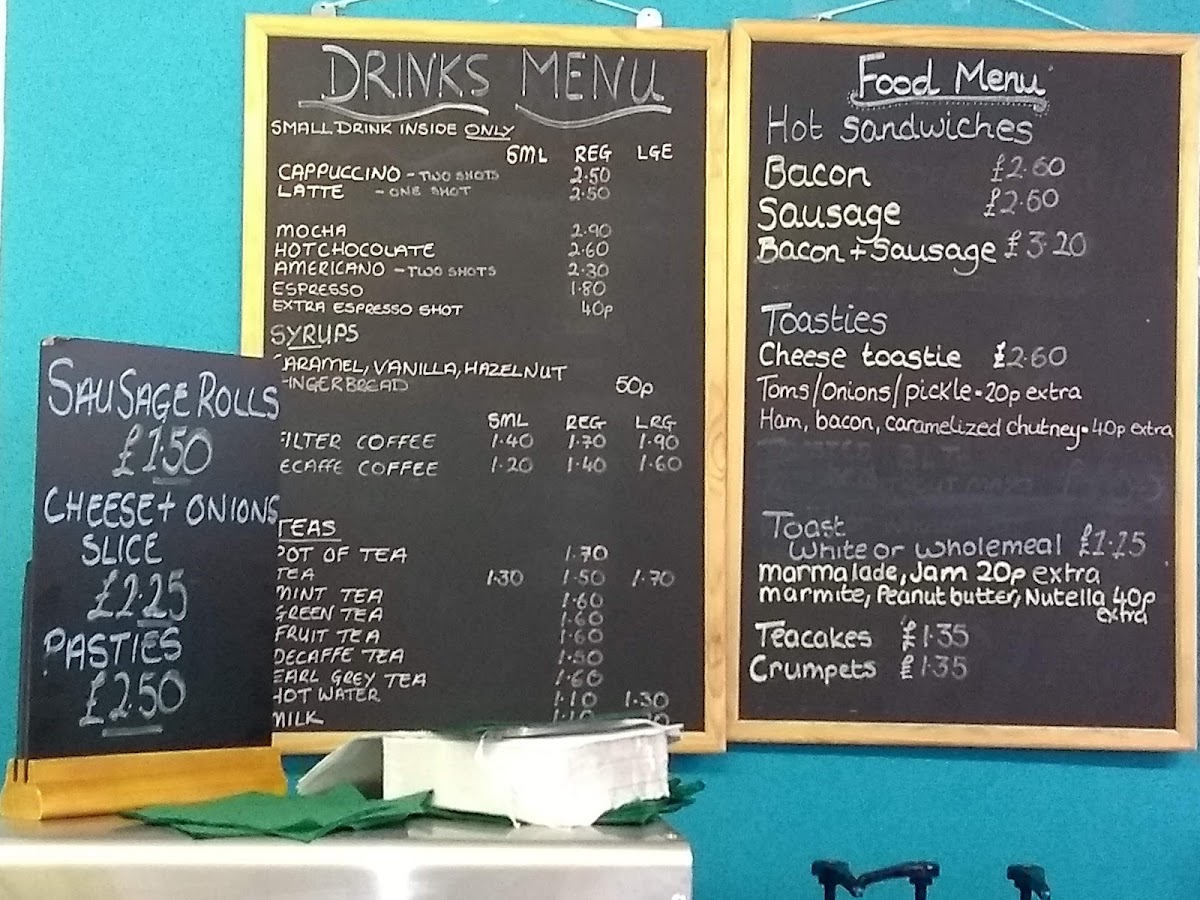 SAUSAGE ROLLS
£1.50
CHEESE + ONIONS
SLICE
£2.25
PASTIES
£2.50
DRINKS MENU
SMALL DRINK INSIDE ONLY
SML REG LGE
CAPPUCCINO - TWO SHOTS 2.50
LATTE - ONE SHOT 2.50
MOCHA 2.90
HOT CHOCOLATE 2.60
AMERICANO - TWO SHOTS 2.30
ESPRESSO 1.80
EXTRA ESPRESSO SHOT 40p
SYRUPS
CARAMEL, VANILLA, HAZELNUT
GINGERBREAD 50p
SML REG LRG
FILTER COFFEE 1.40 1.70 1.90
DECAFFE COFFEE 1.20 1.40 1.60
TEAS
POT OF TEA 1.70
TEA 1.30 1.50 1.70
MINT TEA 1.60
GREEN TEA 1.60
FRUIT TEA 1.60
DECAFFE TEA
EARL GREY TEA 1.60
HOT WATER 1.10 1.30
MILK 1.10
Food Menu
Hot Sandwiches
Bacon £2.60
Sausage £2.60
Bacon + Sausage £3.20
Toasties
Cheese toastie £2.60
Toms/Onions/pickle - 20p extra
Ham, bacon, caramelized chutney - 40p extra
Toast
White or wholemeal
marmalade, Jam 20p extra
marmite, Peanut butter, Nutella 40p
extra
Teacakes £1.35
Crumpets £1.35